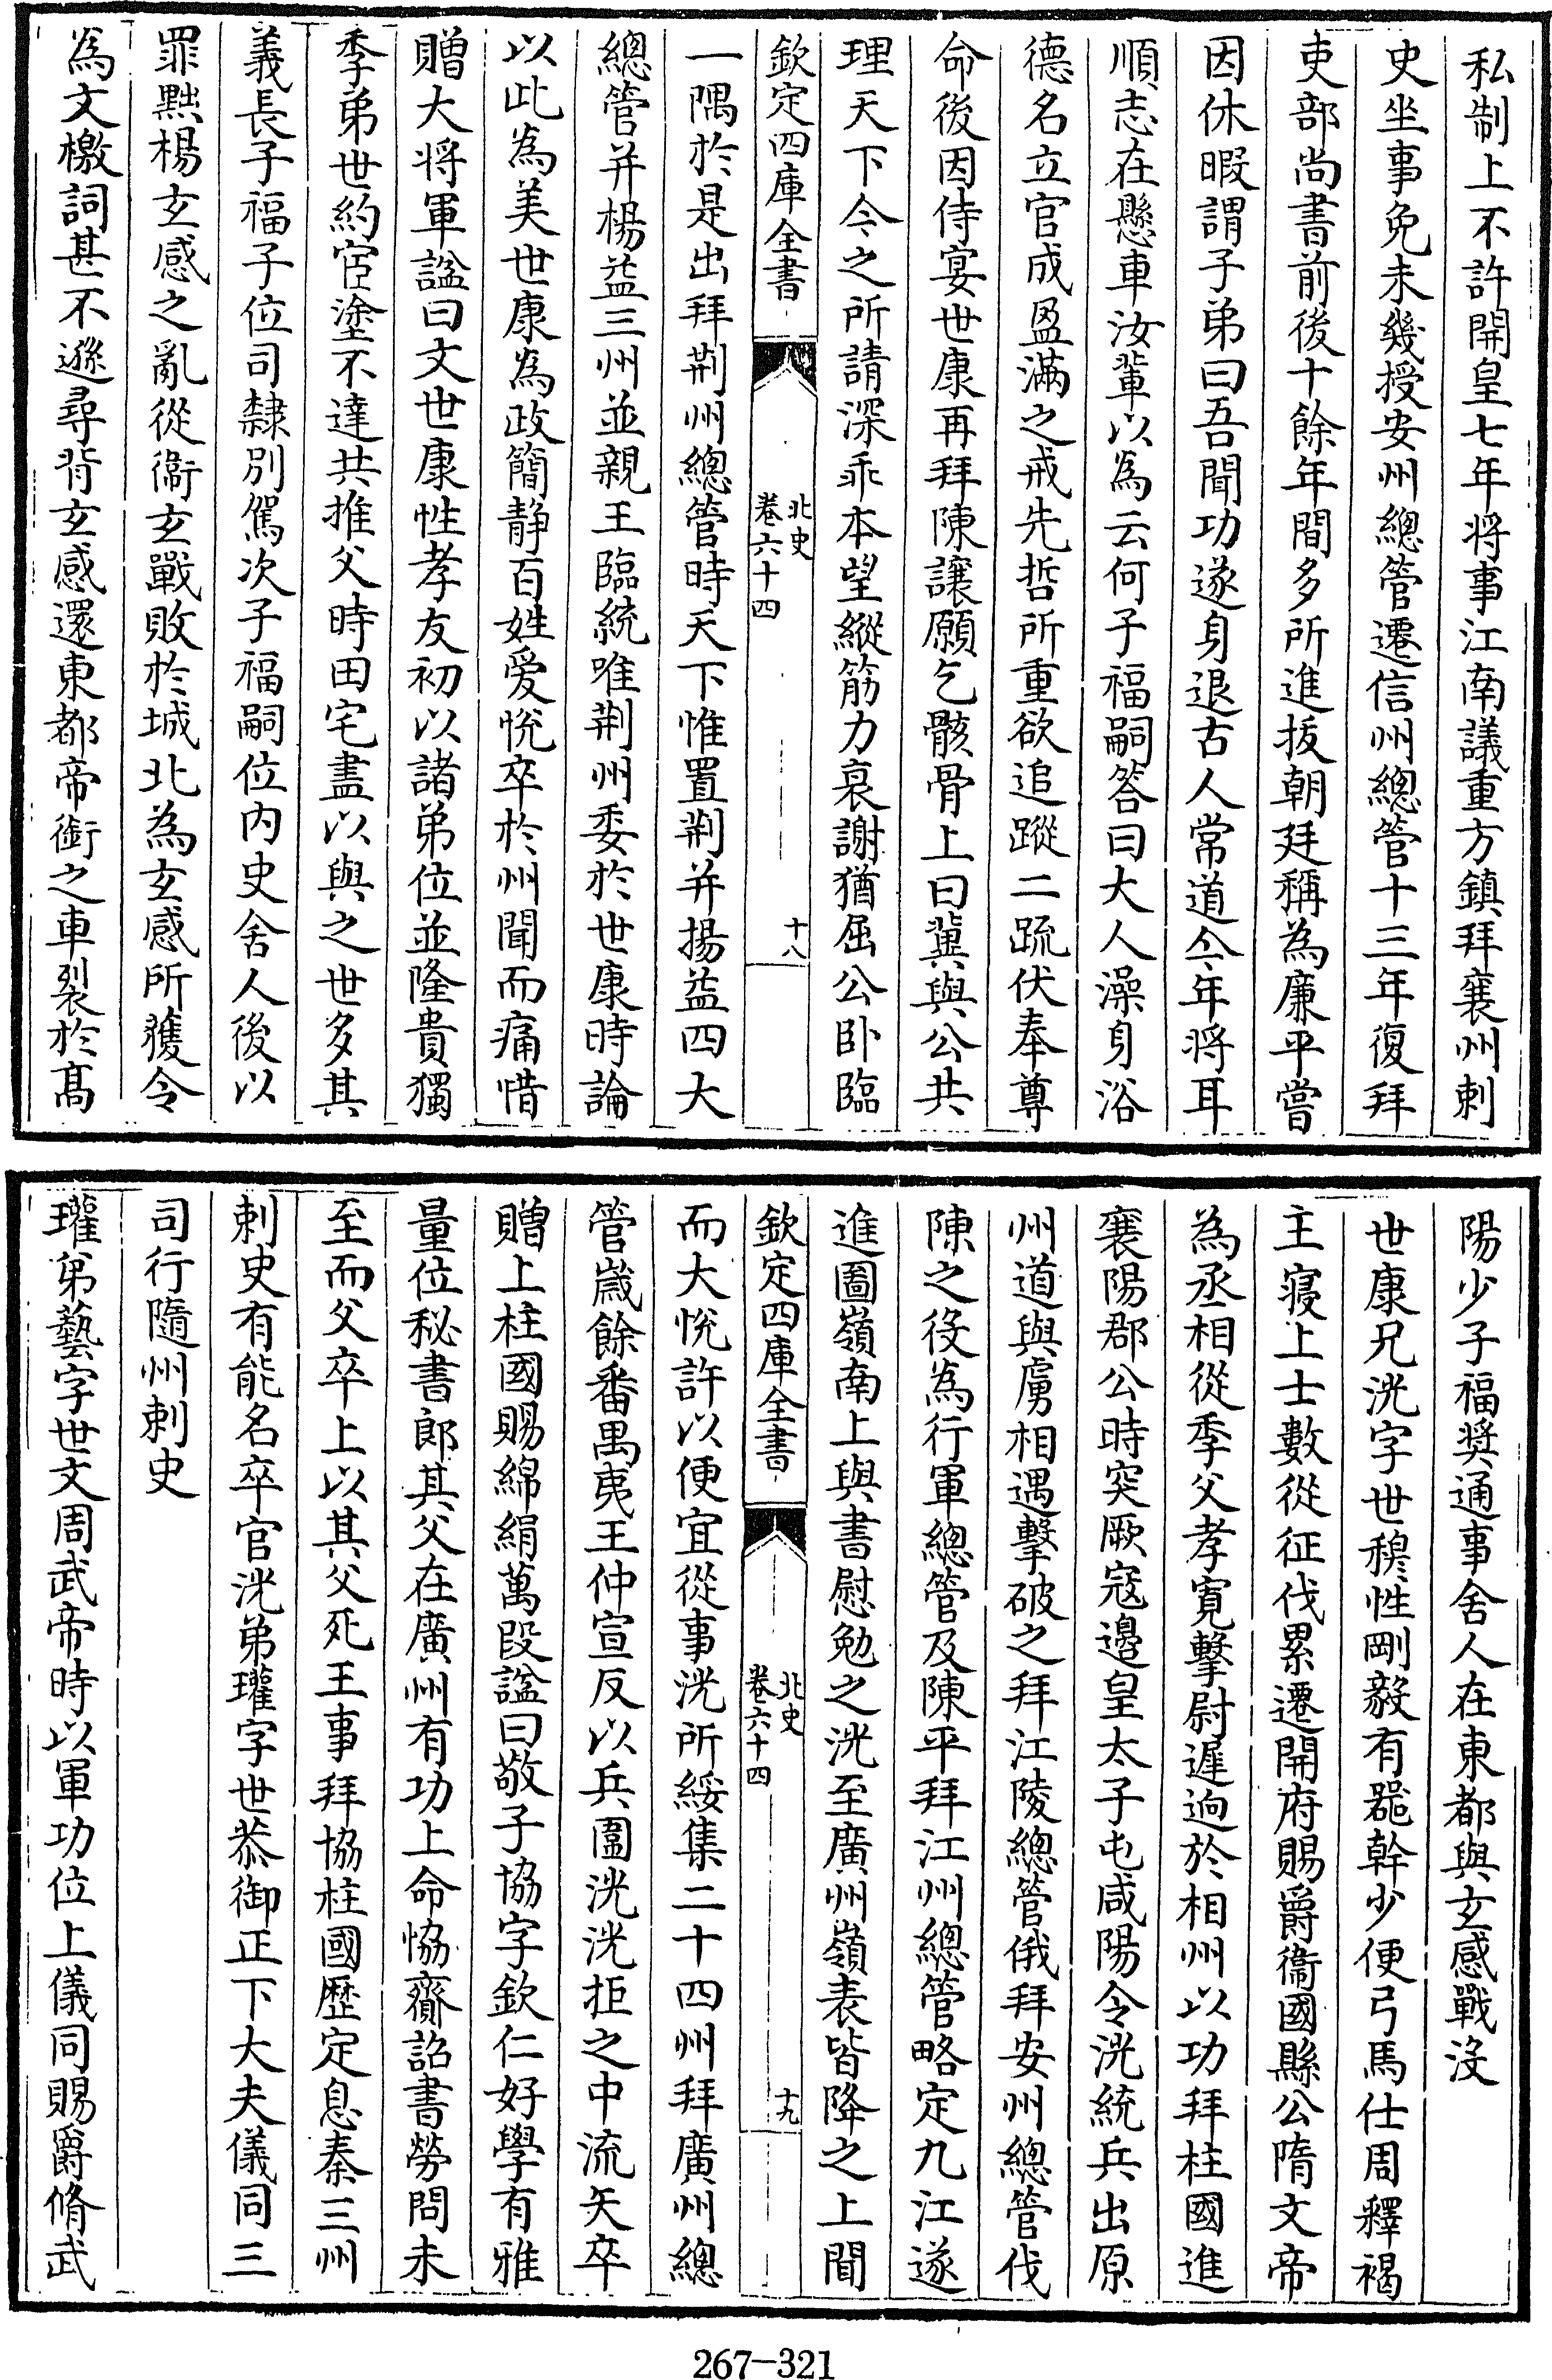 私制上不許開皇七年将事江南議重方鎮拜襄州刺
史坐事免未幾授安州總管遷信州總管十三年復拜
吏部尚書前後十餘年間多所進拔朝廷稱為廉平嘗
因休暇謂子弟曰吾聞功遂身退古人常道今年将耳
順志在懸車汝輩以為云何子福嗣答曰大人澡身浴
德名立官成盈滿之戒先哲所重欲追蹤二疏伏奉尊
命後因侍宴世康再拜陳讓願乞骸骨上曰冀與公共
理天下今之所請深乖本望縱筋力衰謝猶屈公卧臨
欽定四庫全書
北史
卷六十四
十八
一隅於是出拜荆州總管時天下惟置荆并揚益四大
總管并楊益三州並親王臨統唯荆州委於世康時論
以此為美世康為政簡静百姓爱悅卒於州聞而痛惜
贈大将軍諡曰文世康性孝友初以諸弟位並隆貴獨
季弟世約宦塗不達共推父時田宅盡以與之世多其
義長子福子位司隸別駕次子福嗣位内史舍人後以
罪黜楊玄感之亂從衞玄戰敗於城北為玄感所獲令
為文檄詞甚不遜尋背玄感還東都帝銜之車裂於髙
陽少子福奨通事舍人在東都與玄感戰没
世康兄洸字世穆性剛毅有器幹少便弓馬仕周釋褐
主寝上士數從征伐累遷開府賜爵衞國縣公隋文帝
為丞相從季父孝寛擊尉遲逈於相州以功拜柱國進
襄陽郡公時突厥寇邉皇太子屯咸陽令洸統兵出原
州道與虜相遇擊破之拜江陵總管俄拜安州總管伐
陳之役為行軍總管及陳平拜江州總管略定九江遂
進圖嶺南上與書慰勉之洸至廣州嶺表皆降之上聞
欽定四庫全書
北史
卷六十四
十九
而大悅許以便宜從事洸所綏集二十四州拜廣州總
管歲餘番禺夷王仲宣反以兵圍洸洸拒之中流矢卒
贈上柱國賜綿絹萬段諡曰敬子協字欽仁好學有雅
量位秘書郎其父在廣州有功上命恊齎詔書勞問未
至而父卒上以其父死王事拜協柱國歷定息秦三州
刺史有能名卒官洸弟瓘字世恭御正下大夫儀同三
司行隨州刺史
瓘弟藝字世文周武帝時以軍功位上儀同賜爵脩武
267-321